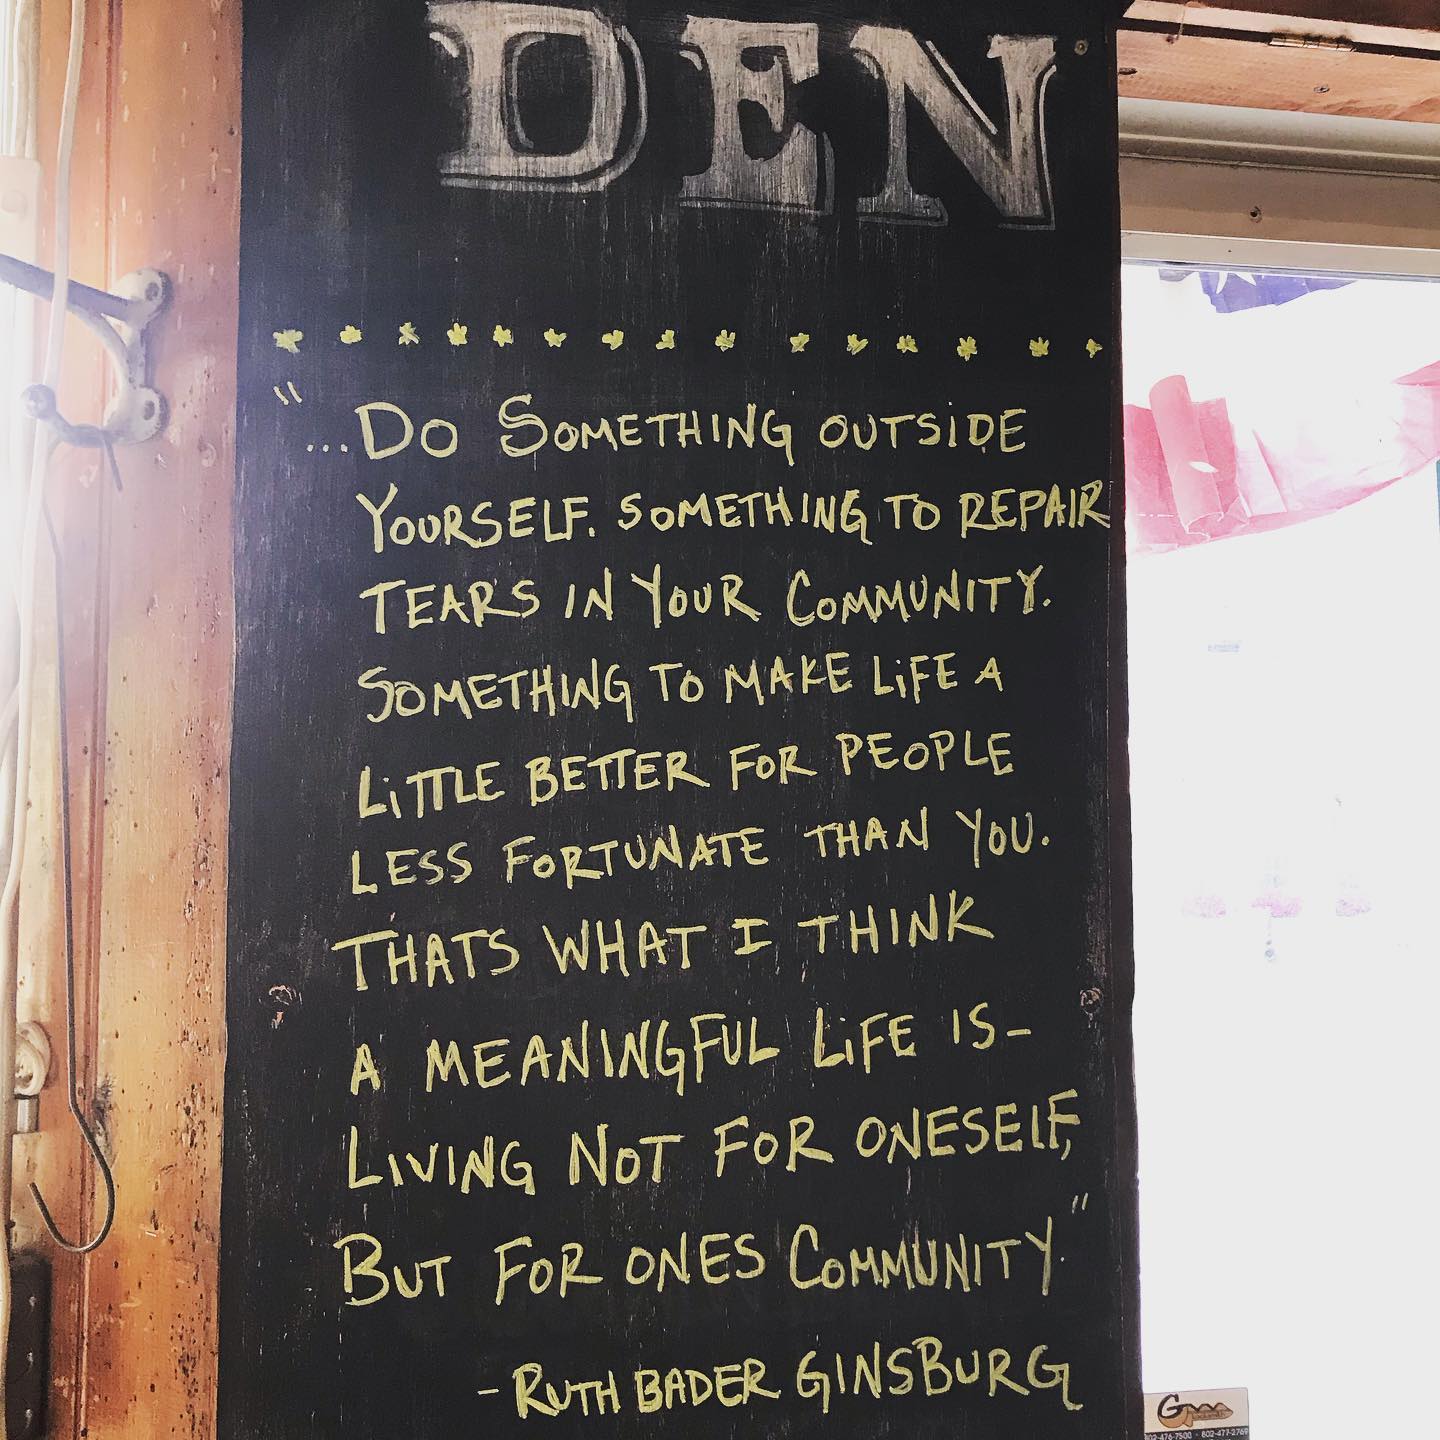 DEN
"
...Do Something outside
Yourself. Something to Repair
Tears in Your Community.
Something to make Life a
Little Better for People
Less Fortunate than you.
Thats what I think
A meaningful Life is-
Living not for oneself,
But for ones Community."
- Ruth Bader Ginsburg
802-476-7500 · 802-477-2769